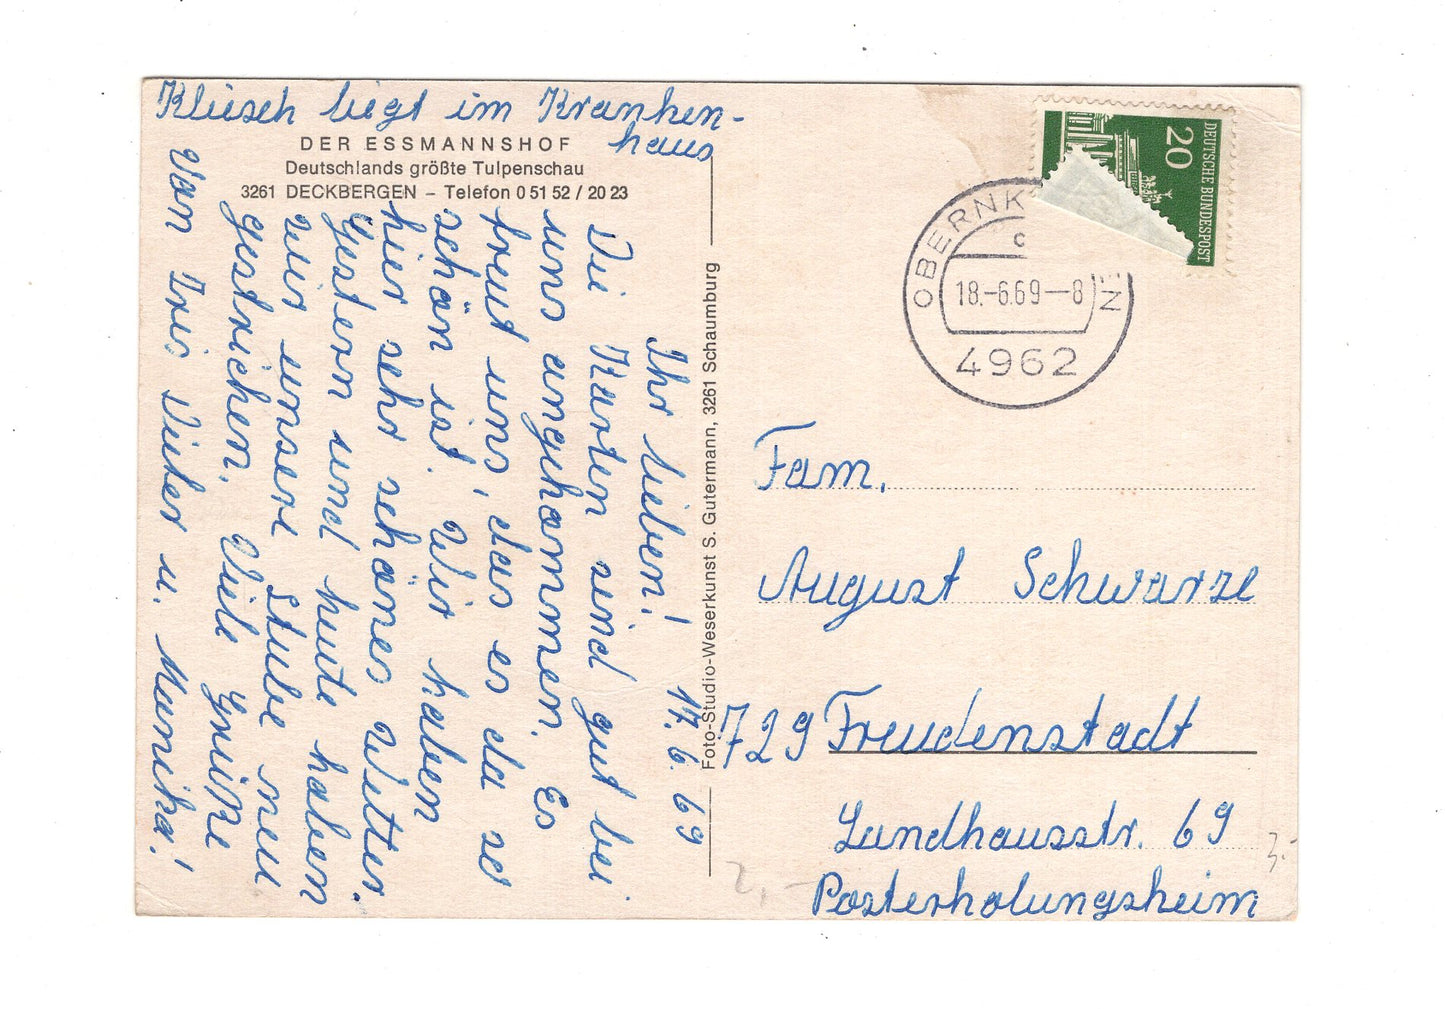 Kliesch liegt im Kranken-
haus
DER ESSMANNSHOF
Deutschlands größte Tulpenschau
3261 DECKBERGEN – Telefon 0 51 52 / 20 23
17. 6. 69
Ihr lieben!
Die Karten sind gut bei
uns angekommen. Es
freut uns, das es da so
schön ist. Wir haben
hier sehr schönes Wetter.
Gestern und heute haben
wir unsere Stube neu
gestrichen. Viele Grüße
von Iris Dieter u. Monika!
Foto-Studio-Weserkunst S. Gutermann, 3261 Schaumburg
DEUTSCHE BUNDESPOST
20
OBERNK
EN
c
18.-6.69-8
4962
Fam.
August Schwarze
729 Freudenstadt
Landhausstr. 69
Posterholungsheim
2,-
3.-